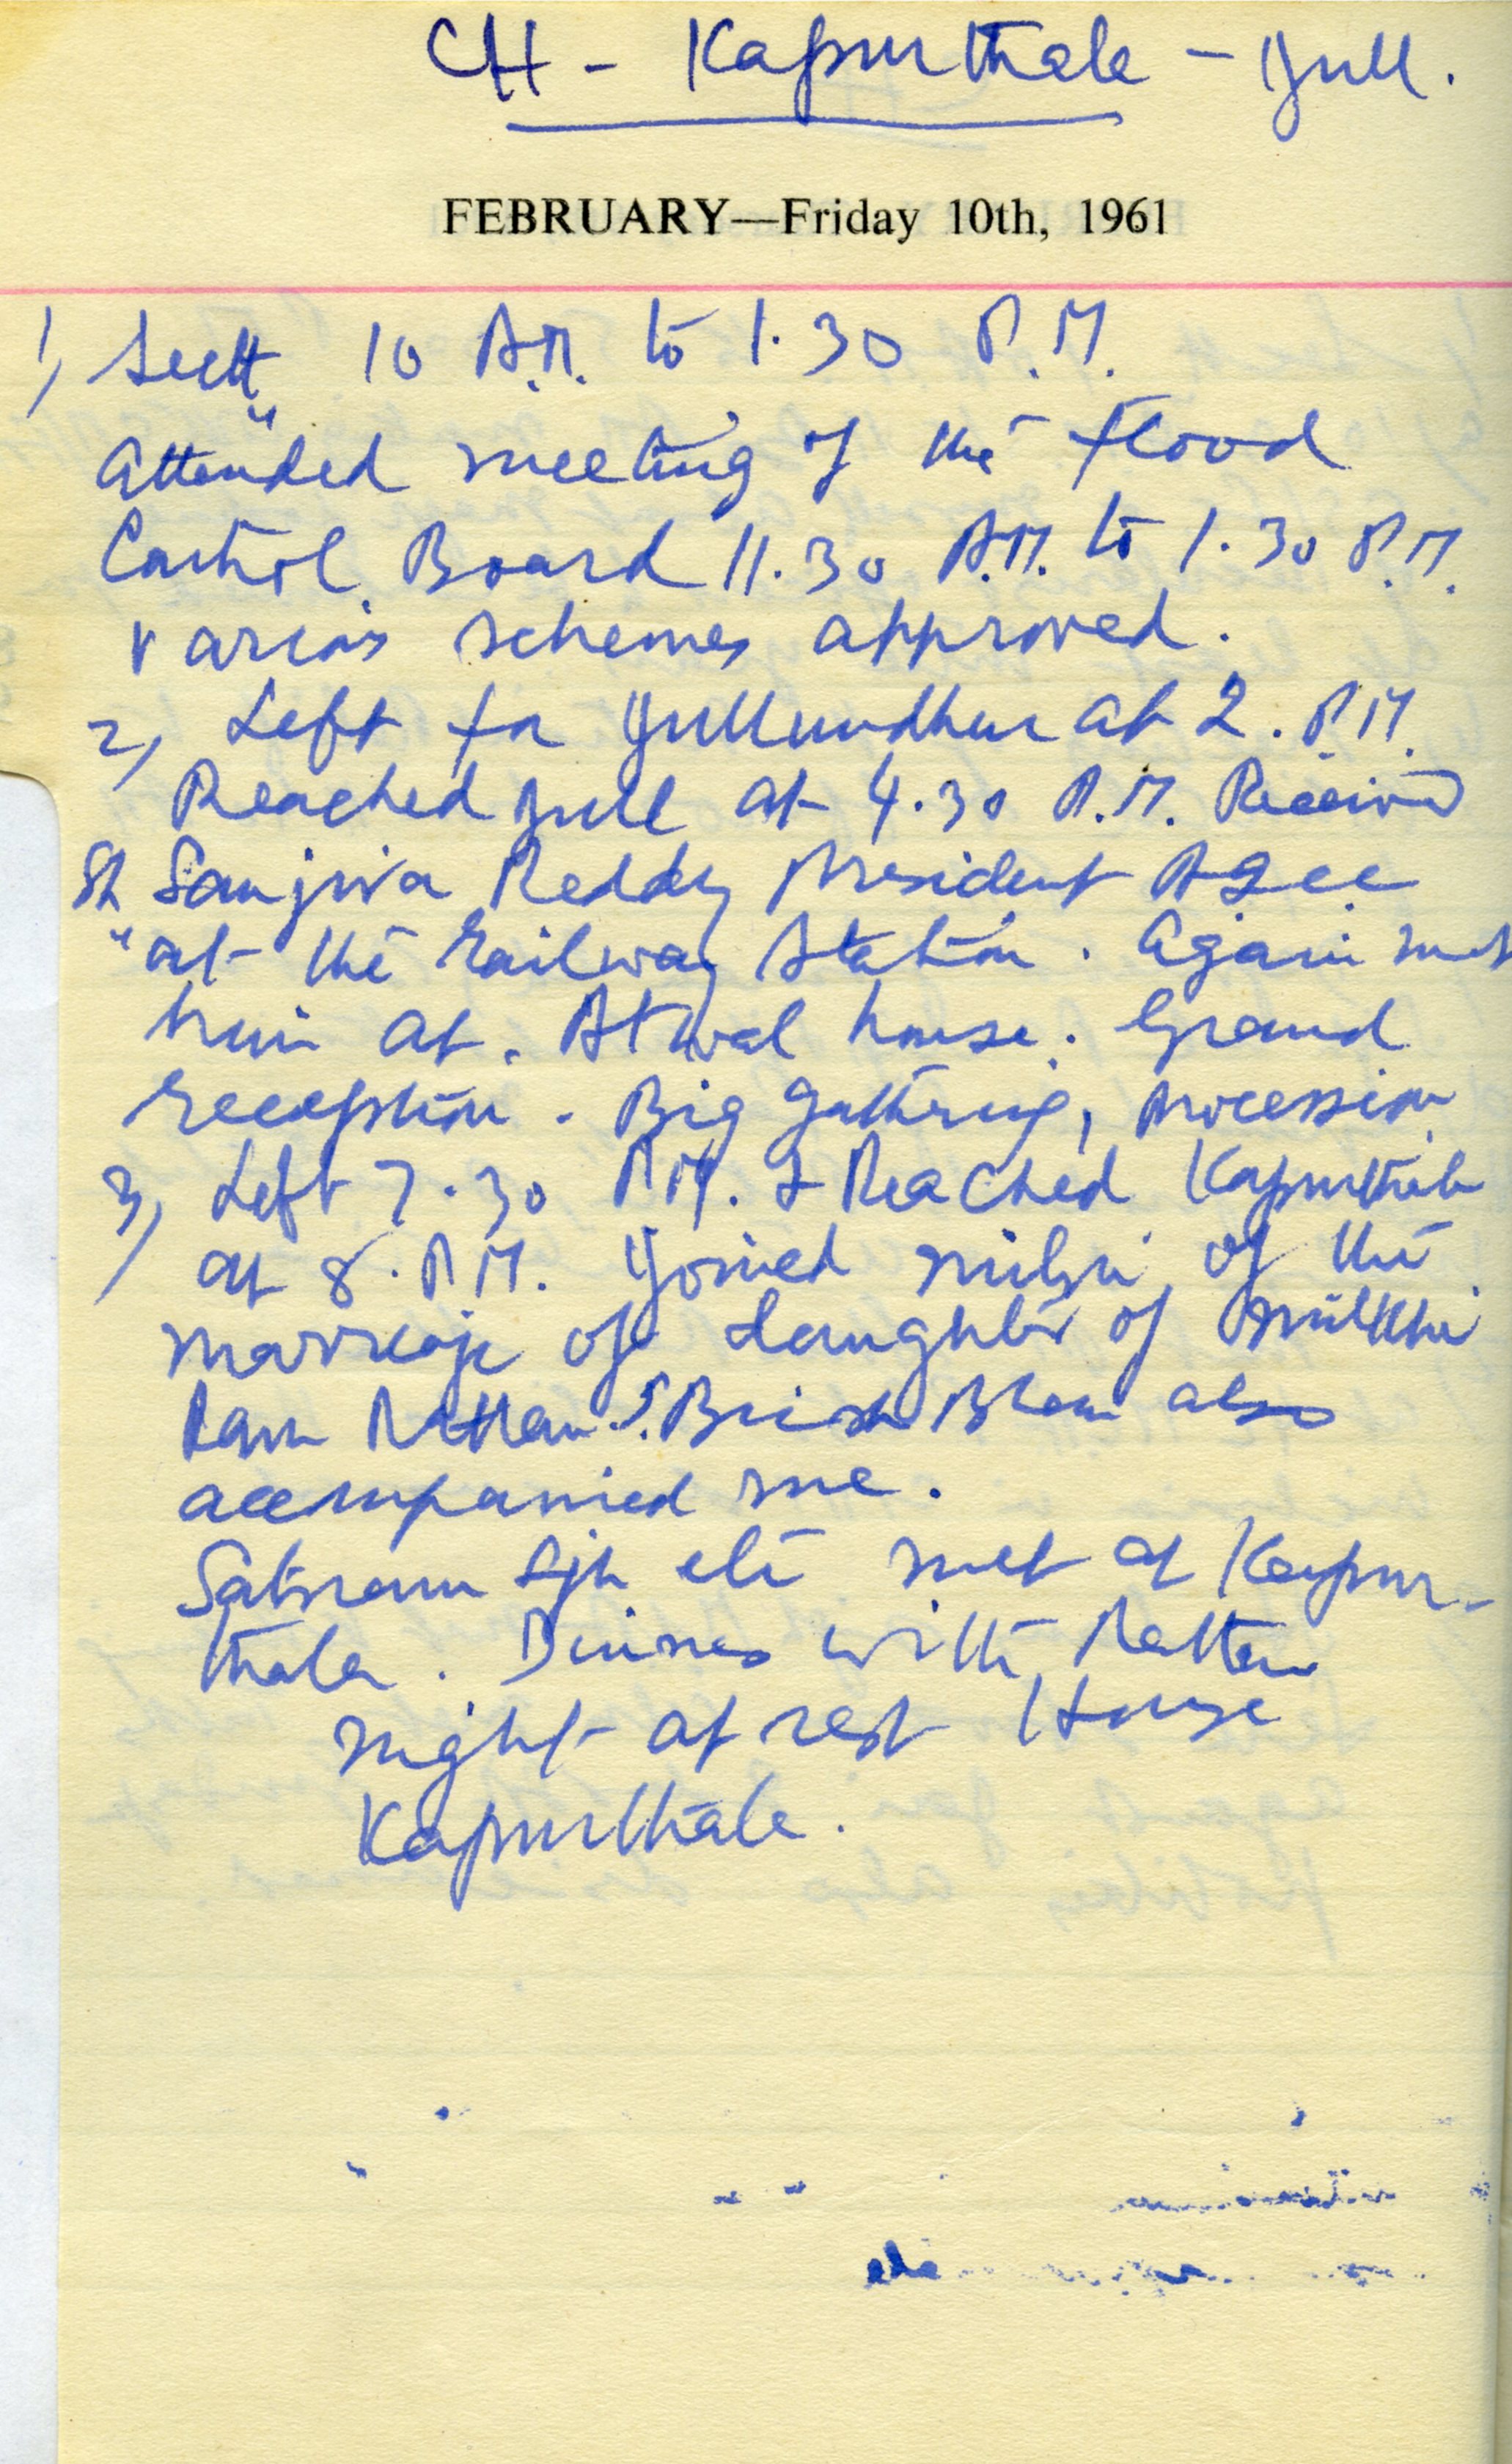 CH - Kapurthala - Jull.
FEBRUARY—Friday 10th, 1961
1, Sectt 10 A.M. to 1.30 P.M.
Attended meeting of the Flood
Control Board 11.30 A.M. to 1.30 P.M.
Various schemes approved.
2, Left for Jullundhur at 2. P.M.
Reached Jull at 4.30 P.M. Received
Sh Sanjiva Reddy President AICC
at the railway Station. Again met
him at. Atwal house. Grand
reception. Big gathering, procession
3, Left 7.30 P.M. & Reached Kapurthala
at 8. P.M. Joined milni of the
marriage of daughter of Milkhi
Ram Rattan. S. Brish Bhan also
accompanied me.
Satnam Sgh etc met at Kapur-
thala. Dinner with Rattan
night at rest House
Kapurthala.